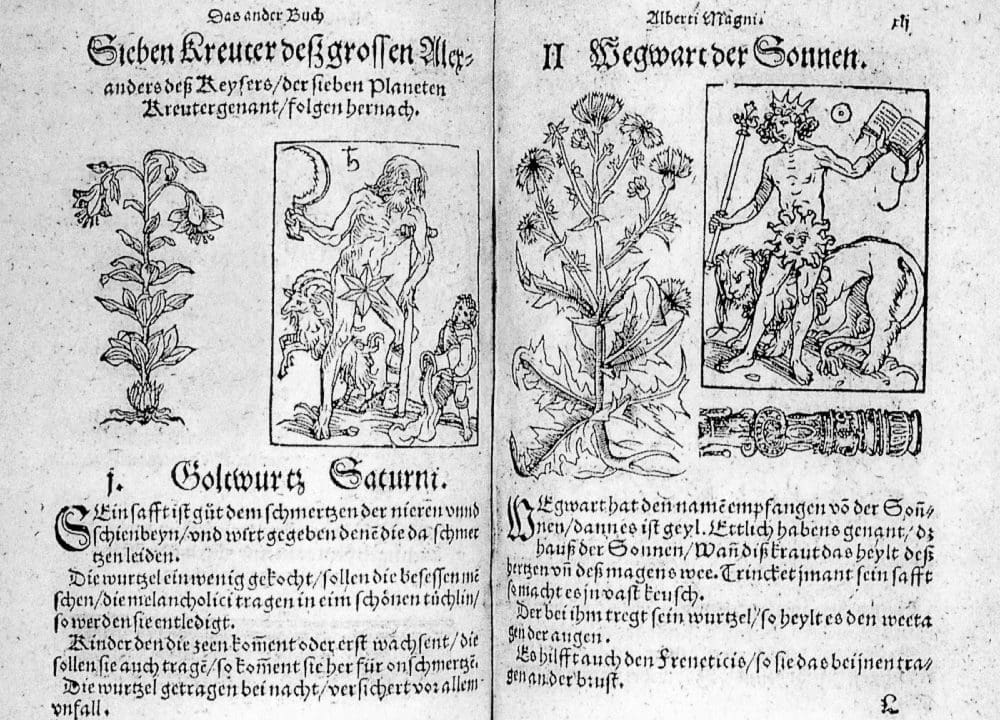 Das ander Buch
Sieben Kreuter deß grossen Alex⸗
anders deß Keysers/der sieben Planeten
Kreuter genant/folgen hernach.
♄
j. Goltwurtz Saturni.
SEin safft ist gůt dem schmertzen der nieren vnnd
schienbeyn/vnd wirt gegeben denē die da schmer
tzen leiden.
Die wurtzel ein wenig gekocht/sollen die besessen mē
schen/die melancholici tragen in eim schönen tüchlin/
so werden sie entledigt.
Kinder den die zeen kom̄ent oder erst wachsent/die
sollen sie auch tragē/so kom̄ent sie her für on schmertzē.
Die wurtzel getragen bei nacht/versichert vor allem
vnfall.
Alberti Magni.
xlj
II Wegwart der Sonnen.
☉
WEgwart hat den namē empfangen vō der Soñ⸗
nen/dann es ist geyl. Ettlich habens genant/dz
hauß der Sonnen/Wañ diß kraut das heylt deß
hertzen vñ deß magens wee. Trincket jmant sein safft
so macht es jn vast keusch.
Der bei ihm tregt sein wurtzel/so heylt es den weeta
gen der augen.
Es hilfft auch den Freneticis/so sie das bei jnen tra⸗
gen an der brust.
L